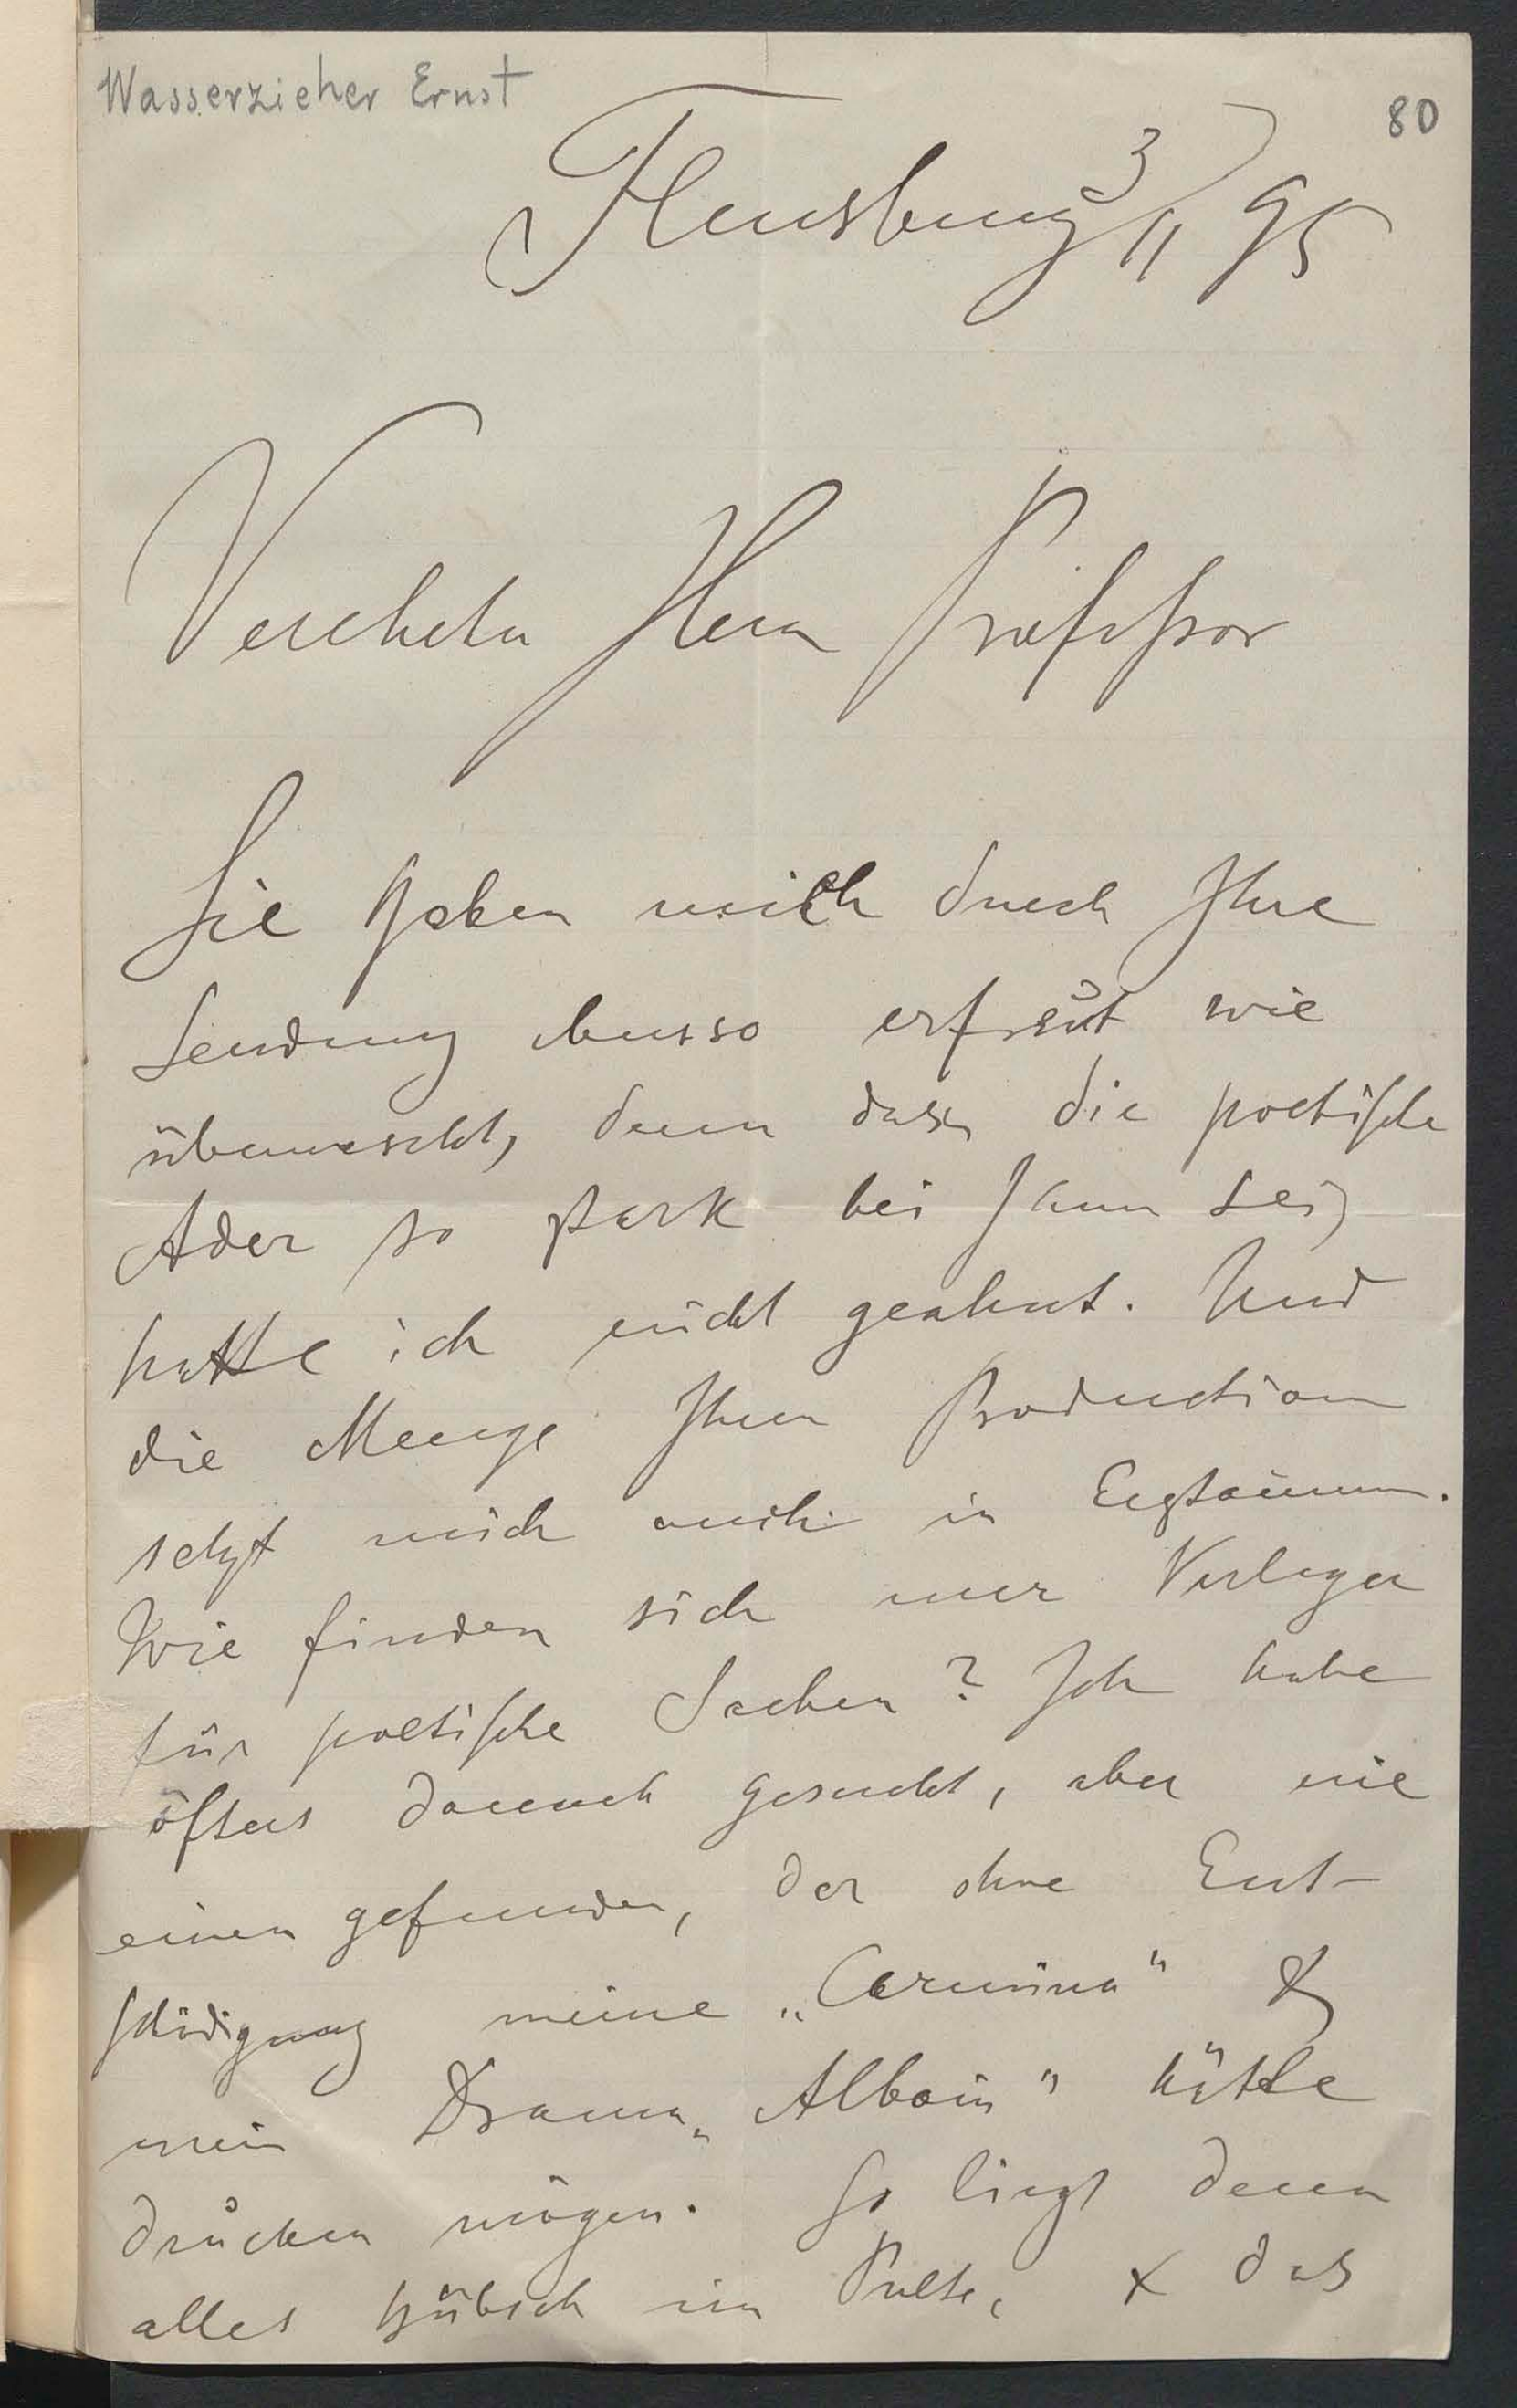 Wasserzieher Ernst
80
Flensburg 3/11 95
Verehrter Herr Professor
Sie haben mich durch Ihre
Sendung ebenso erfreut wie
überrascht, denn dass die poetische
Ader so stark bei Ihnen sei,
hatte ich nicht geahnt. Und
die Menge Ihrer Production
setzt mich auch in Erstaunen.
Wie finden sich nur Verleger
für poetische Sachen? Ich habe
öfters danach gesucht, aber nie
einen gefunden, der ohne Ent-
schädigung meine „Carmina" &
mein Drama „Alboin" hätte
drucken mögen. So liegt denn
alles hübsch im Pulte, & das